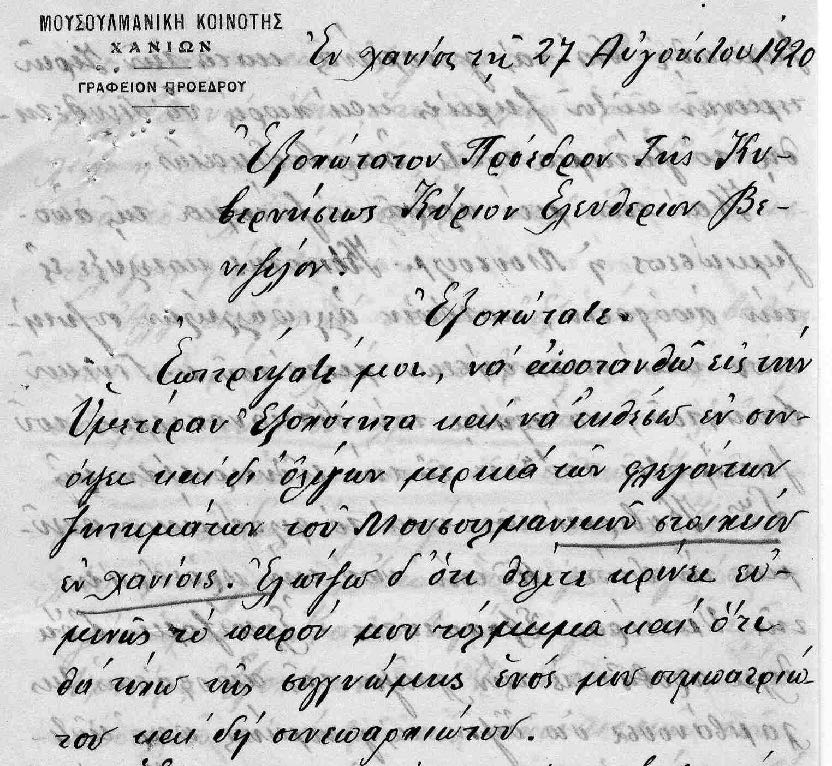 ΜΟΥΣΟΥΛΜΑΝΙΚΗ ΚΟΙΝΟΤΗΣ
ΧΑΝΙΩΝ
ΓΡΑΦΕΙΟΝ ΠΡΟΕΔΡΟΥ
Ἐν Χανίοις τῇ 27 Αὐγούστου 1920
Ἐξοχώτατον Πρόεδρον τῆς Κυ-
βερνήσεως Κύριον Ἐλευθέριον Βε-
νιζέλον.
Ἐξοχώτατε.
Ἐπιτρέψατέ μοι, νὰ ἀποτανθῶ εἰς τὴν
Ὑμετέραν Ἐξοχότητα καὶ νὰ ἐκθέσω ἐν συν-
όψει καὶ δι' ὀλίγων μερικὰ τῶν φλεγόντων
ζητημάτων τοῦ Μουσουλμανικοῦ στοιχείου
ἐν Χανίοις. Ἐλπίζω δ' ὅτι θέλετε κρίνει εὐ-
μενῶς τὸ παρόν μου τόλμημα καὶ ὅτι
θὰ τύχω τῆς συγγνώμης ἑνός μου συμπατριώ-
του καὶ δὴ συνεπαρχιώτου.